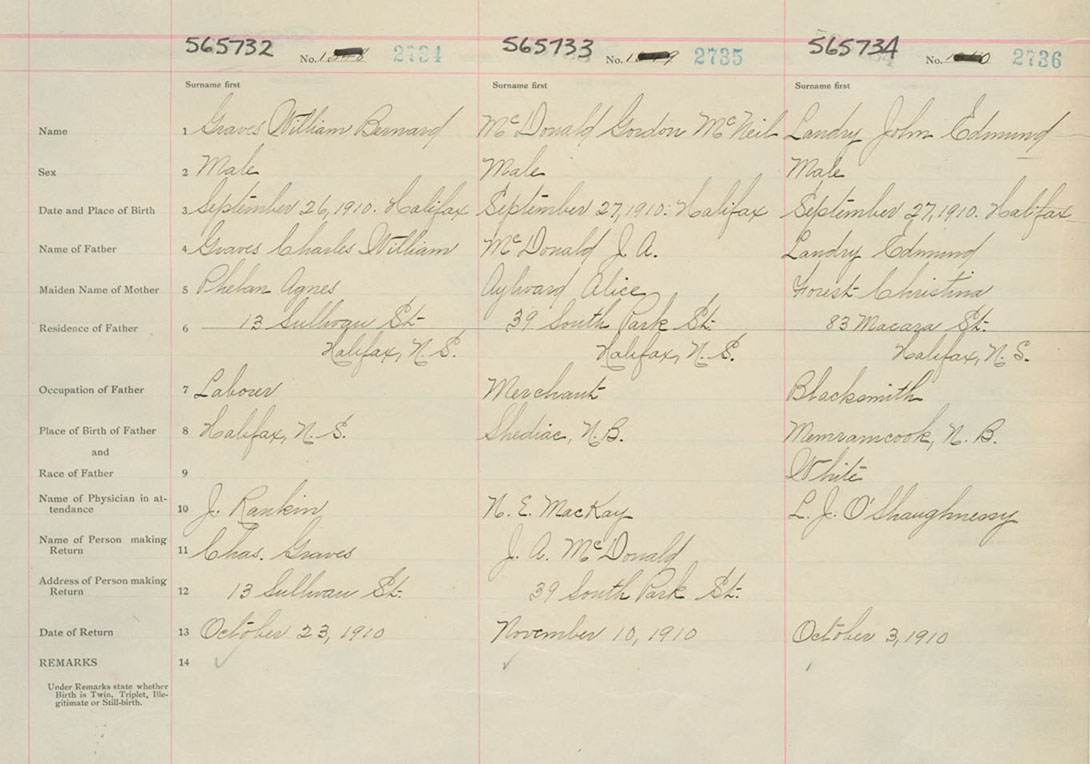 565732 No. 2734 565733 No. 2735 565734 No. 2736
Surname first Surname first Surname first
Name 1 Graves William Bernard McDonald Gordon McNeil Landry John Edmund
Sex 2 Male Male Male
Date and Place of Birth 3 September 26, 1910. Halifax September 27, 1910. Halifax September 27, 1910. Halifax
Name of Father 4 Graves Charles William McDonald J. A. Landry Edmund
Maiden Name of Mother 5 Phelan Agnes Aylward Alice Forest Christina
Residence of Father 6 13 Sullivan St. 39 South Park St. 83 Macara St.
Halifax, N.S. Halifax, N.S. Halifax, N.S.
Occupation of Father 7 Laborer Merchant Blacksmith
Place of Birth of Father 8 Halifax, N.S. Shediac, N.B. Memramcook, N.B.
and
Race of Father 9 White
Name of Physician in at-
tendance 10 J. Rankin N. E. MacKay L. J. O'Shaughnessy
Name of Person making
Return 11 Chas. Graves J. A. McDonald
Address of Person making
Return 12 13 Sullivan St. 39 South Park St.
Date of Return 13 October 23, 1910 November 10, 1910 October 3, 1910
REMARKS 14
Under Remarks state whether
Birth is Twin, Triplet, Ille-
gitimate or Still-birth.